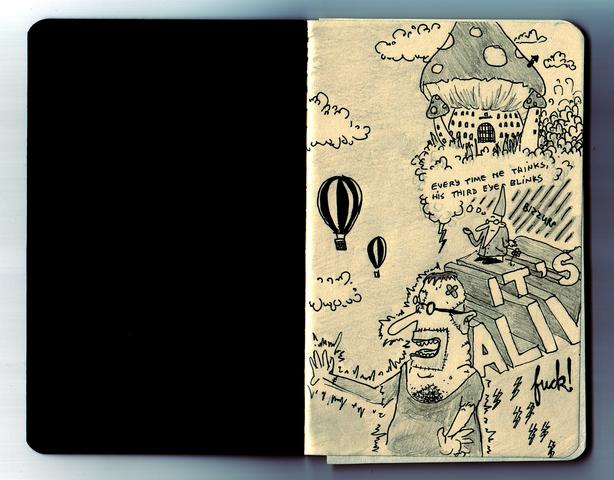 EVERY TIME HE THINKS,
HIS THIRD EYE BLINKS
BIZZURP
IT'S
ALIV
fuck!